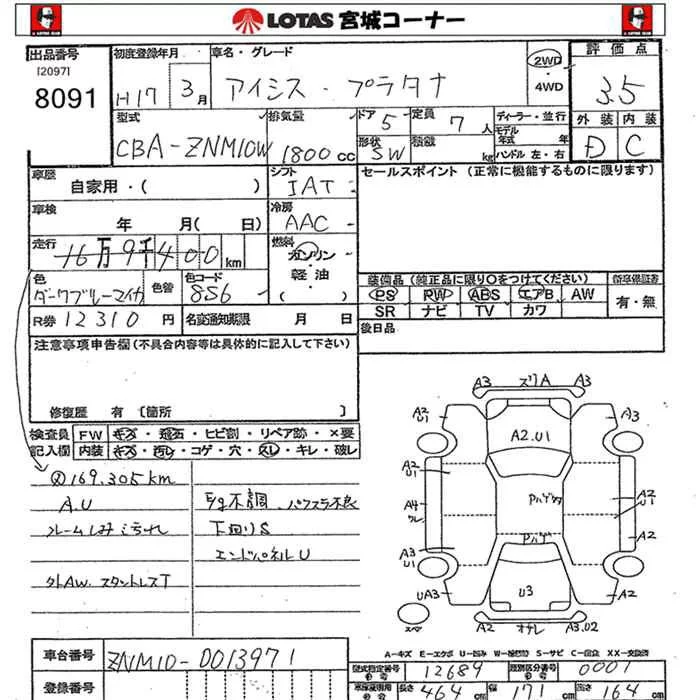 LOTAS 宮城コーナー
出品番号
[2097]
8091
初度登録年月
H17 3月
車名・グレード
アイシス・プラタナ
2WD
・
4WD
評価点
3.5
外装 内装
D C
型式
CBA-ZNM10W
排気量
1800cc
ドア 5
定員 7人
形状 SW
積載 kg
ディーラー・並行
モデル年式 年
ハンドル 左・右
車歴
自家用・( )
シフト
IAT
セールスポイント (正常に機能するものに限ります)
車検
年 月( 日)
冷房
AAC
走行
16万9千400km
燃料
ガソリン
・
軽油
( )
色
ダークブルーマイカ
色替
色コード
8S6
装備品 (純正品に限り○をつけてください)
新車保証書
PS RW ABS エアB AW
有・無
SR ナビ TV カワ
R券 12310円
名変通知期限 月 日
後日品
注意事項申告欄 (不具合内容等は具体的に記入して下さい)
修復歴 有 [箇所 ]
検査員 FW キズ・飛石・ヒビ割・リペア跡・×要
記入欄 内装 キズ・汚レ・コゲ・穴・スレ・キレ・破レ
169,305km
A.U
フレームしみ こちれ
外AW. スタットレスT
S/g不調. パワステ不良
下回りS
エンドパネルU
A3 ズリA A3
A2
U1
A3
A2.U1
A2
U1
A2
U1
Pハゲタ
A4
ワレ
Pハゲ
A2
A3
U1
UA3
U3
A2
スペア
A2 オサレ A3.U2
A-キズ E-エクボ U-凹み W-補修跡 S-サビ C-腐食 XX-交換済
車台番号
ZNM10-0013971
型式指定番号
12689
類別区分番号
0001
登録番号
長さ 464cm
幅 171cm
高さ 164cm